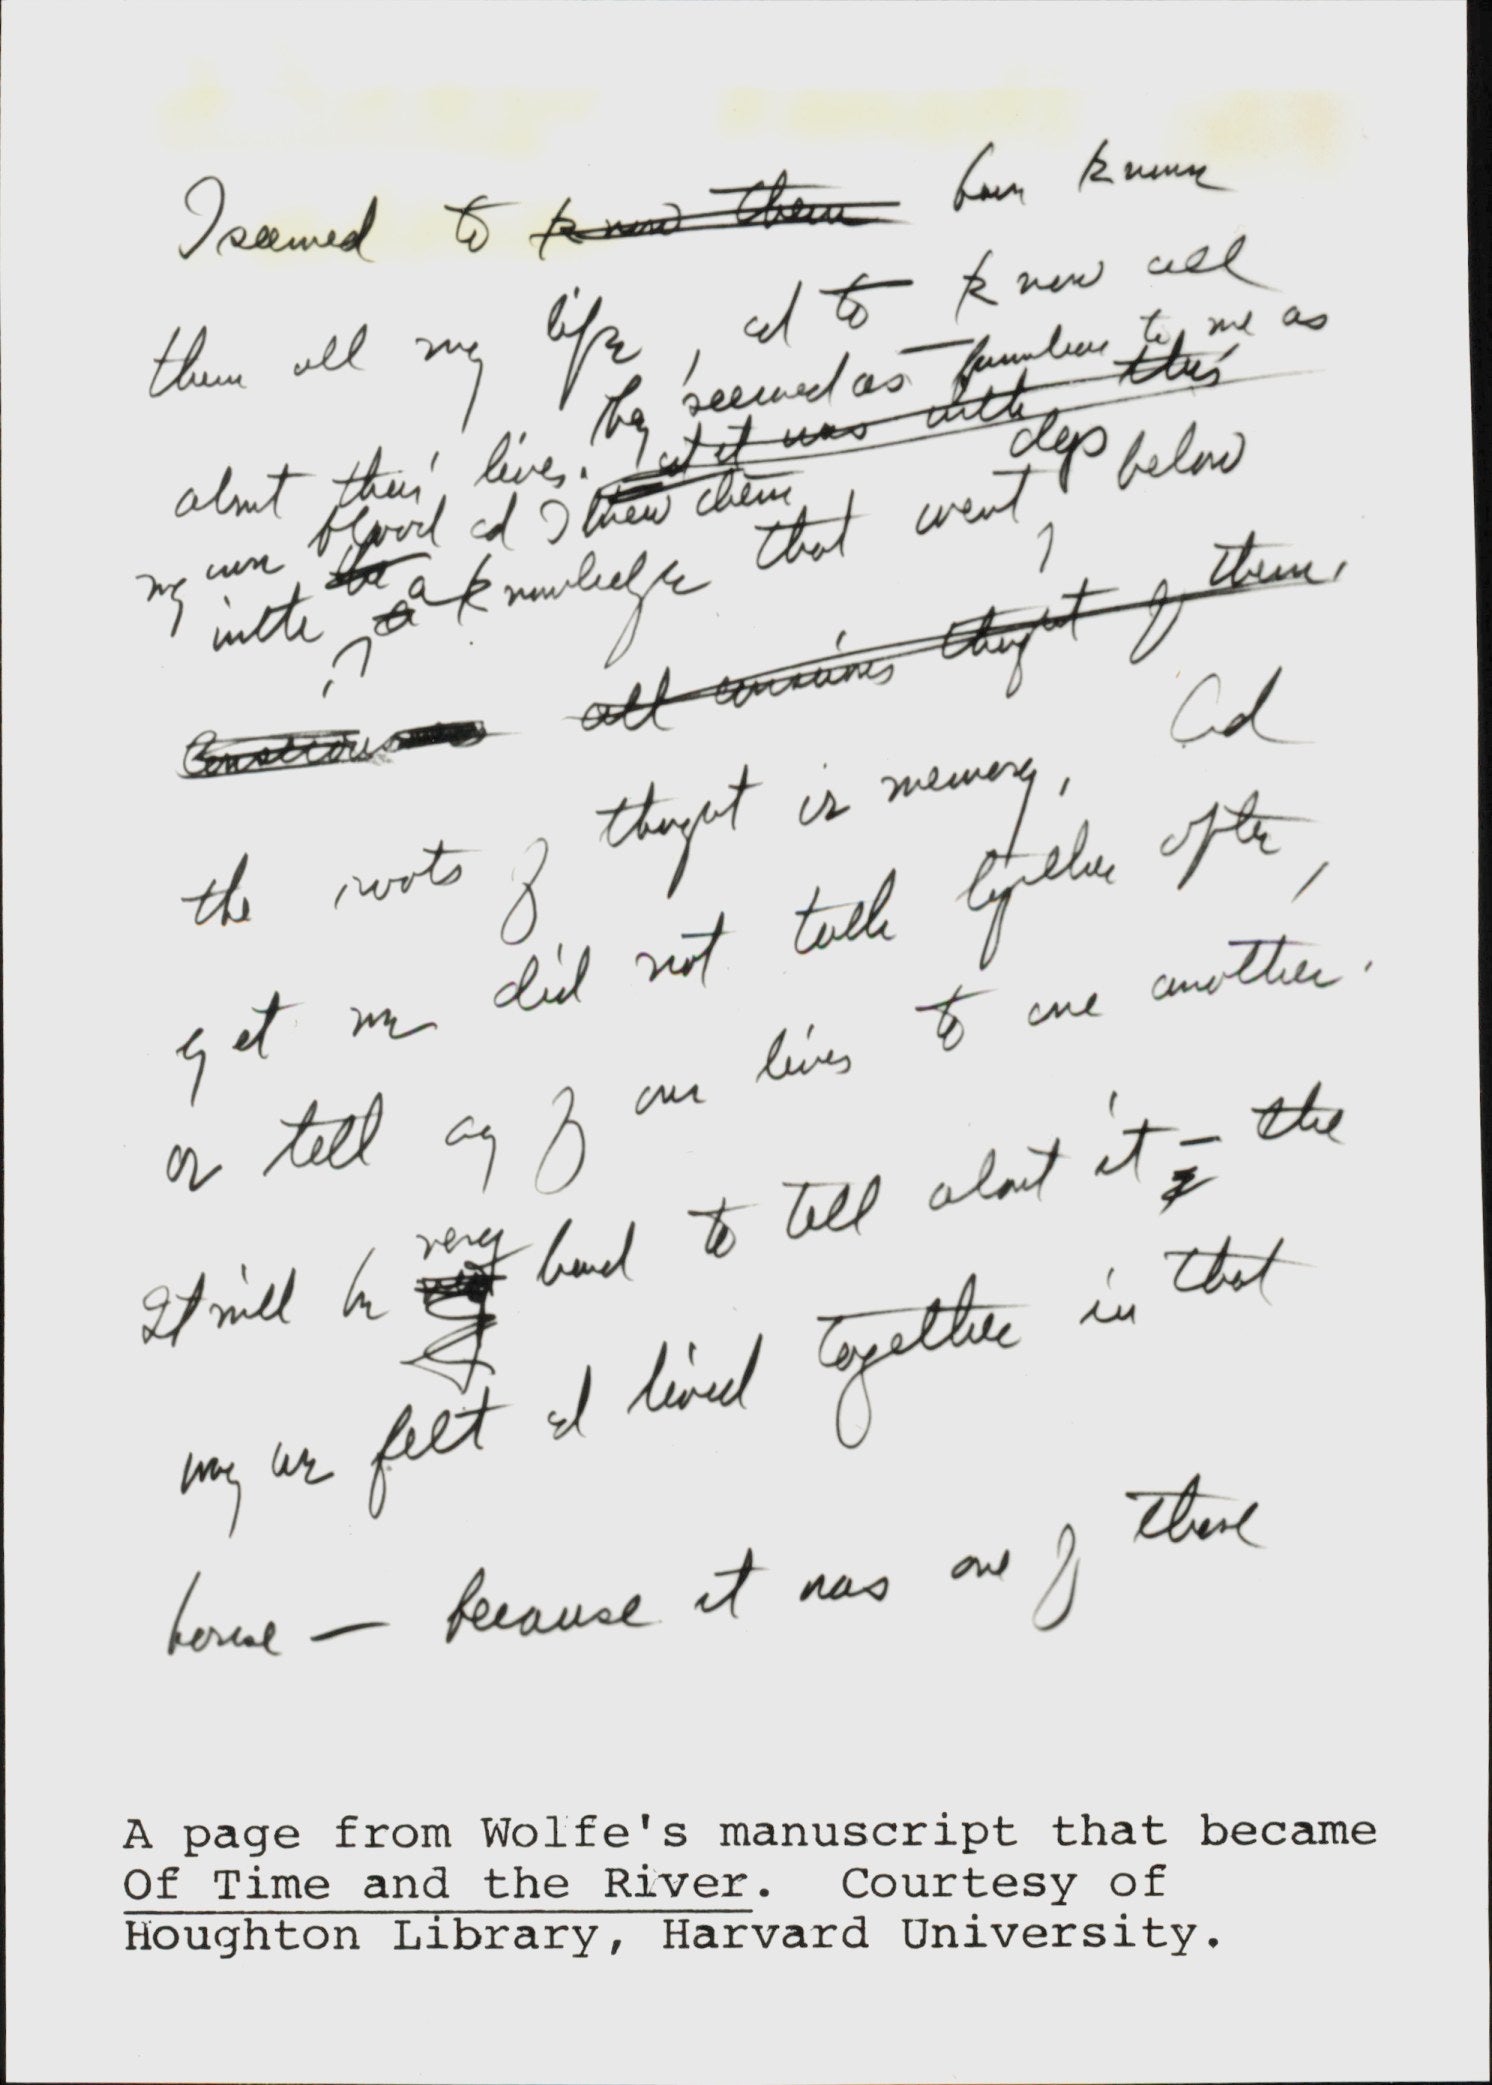 I seemed to know them have known
them all my life, and to know all
about their lives. They seemed as familiar to me as
and it was with this
my own blood and I knew them
with the a a knowledge that went deep below
Conscious all conscious thought of them.
the roots of thought or memory. And
yet we did not talk together often,
or tell any of our lives to one another.
It will be very hard to tell about it — the
way we felt and lived together in that
house — because it was one of those
A page from Wolfe's manuscript that became
Of Time and the River. Courtesy of
Houghton Library, Harvard University.